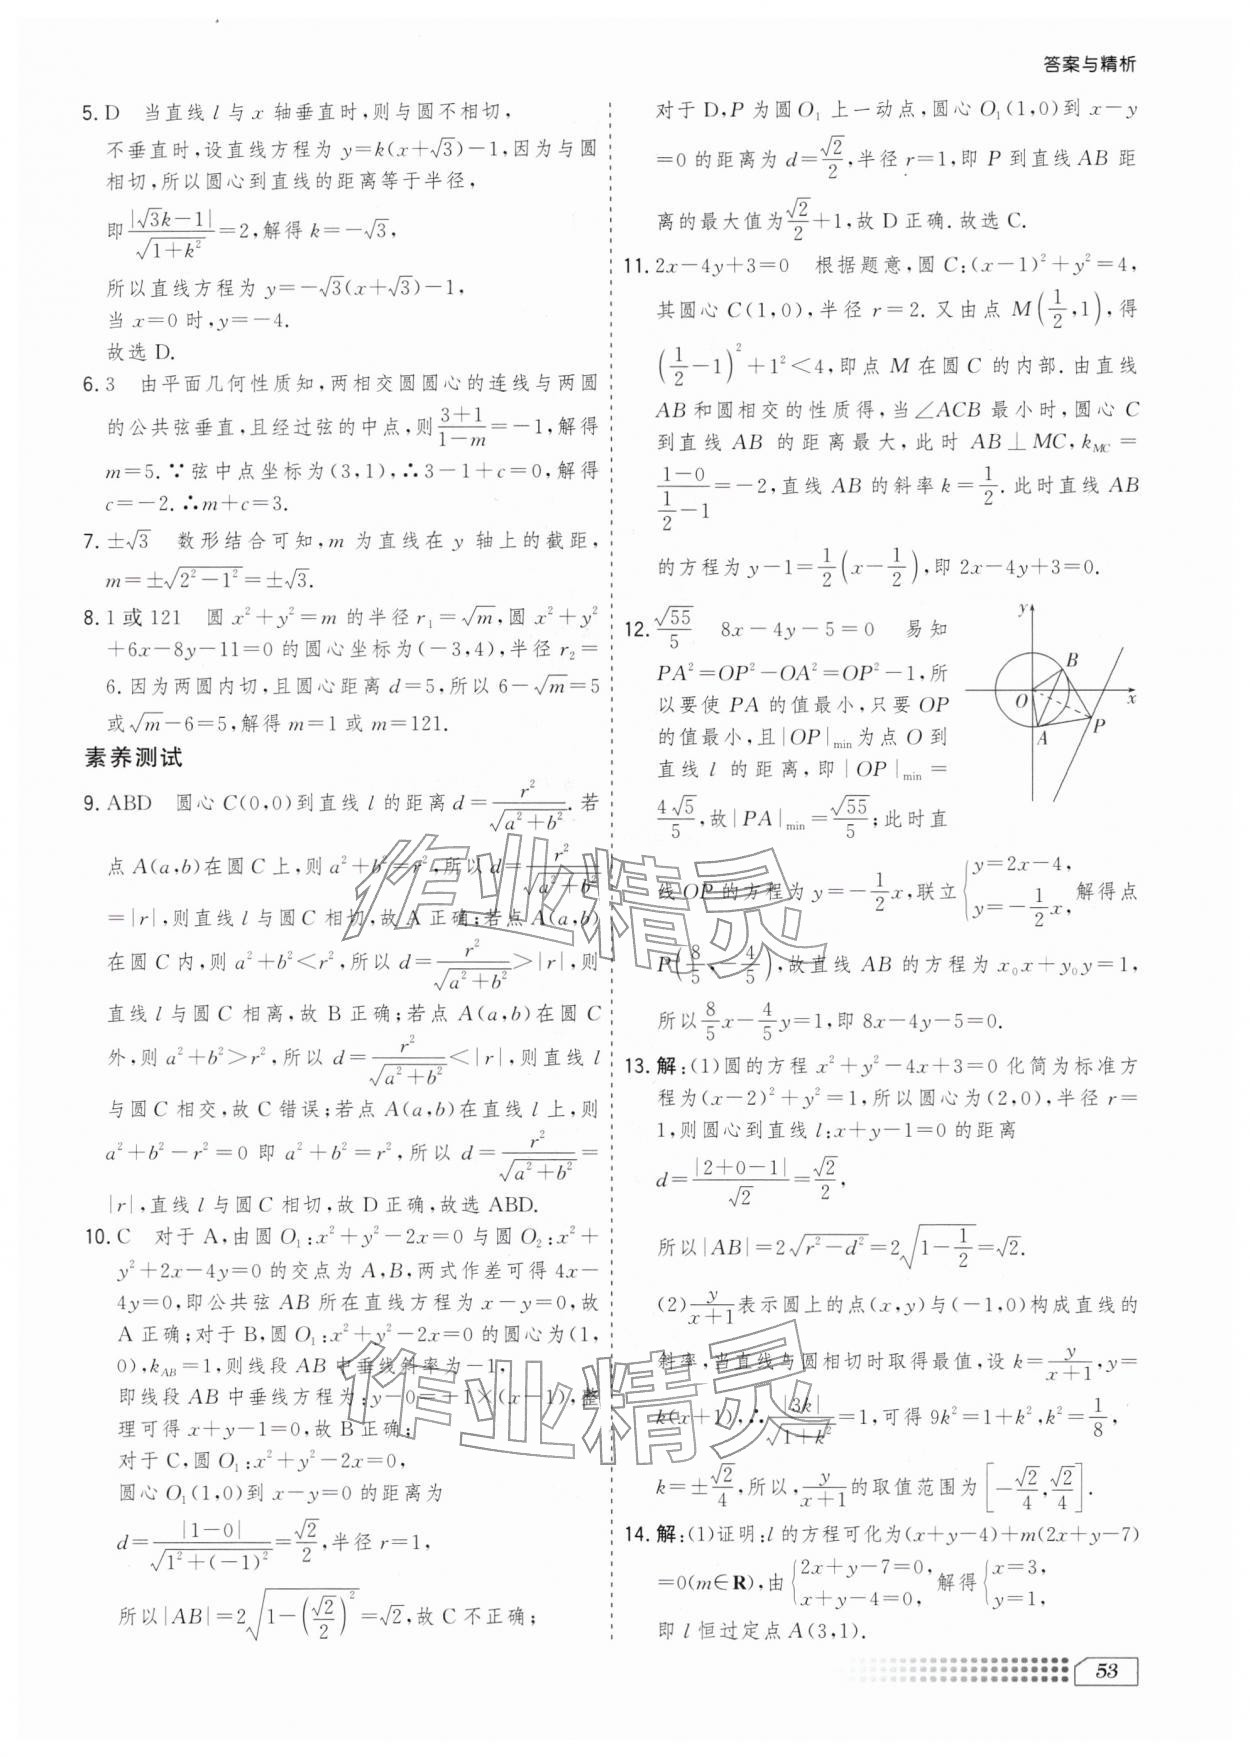 答案与精析
5. D 当直线 l 与 x 轴垂直时,则与圆不相切,
不垂直时,设直线方程为 y=k(x+√3)−1,因为与圆
相切,所以圆心到直线的距离等于半径,
即|√3k−1|/√(1+k²)=2,解得 k=−√3,
所以直线方程为 y=−√3(x+√3)−1,
当 x=0 时,y=−4.
故选 D.
6. 3 由平面几何性质知,两相交圆圆心的连线与两圆
的公共弦垂直,且经过弦的中点,则(3+1)/(1−m)=−1,解得
m=5.∵弦中点坐标为(3,1),∴3−1+c=0,解得
c=−2.∴m+c=3.
7. ±√3 数形结合可知,m 为直线在 y 轴上的截距,
m=±√(2²−1²)=±√3.
8. 1 或 121 圆 x²+y²=m 的半径 r₁=√m,圆 x²+y²
+6x−8y−11=0 的圆心坐标为(−3,4),半径 r₂=
6.因为两圆内切,且圆心距离 d=5,所以 6−√m=5
或√m−6=5,解得 m=1 或 m=121.
素养测试
9. ABD 圆心 C(0,0)到直线 l 的距离 d=r²/√(a²+b²).若
点 A(a,b)在圆 C 上,则 a²+b²=r²,所以 d=r²/√(a²+b²)
=|r|,则直线 l 与圆 C 相切,故 A 正确;若点 A(a,b)
在圆 C 内,则 a²+b²<r²,所以 d=r²/√(a²+b²)>|r|,则
直线 l 与圆 C 相离,故 B 正确;若点 A(a,b)在圆 C
外,则 a²+b²>r²,所以 d=r²/√(a²+b²)<|r|,则直线 l
与圆 C 相交,故 C 错误;若点 A(a,b)在直线 l 上,则
a²+b²−r²=0 即 a²+b²=r²,所以 d=r²/√(a²+b²)=
|r|,直线 l 与圆 C 相切,故 D 正确,故选 ABD.
10. C 对于 A,由圆 O₁:x²+y²−2x=0 与圆 O₂:x²+
y²+2x−4y=0 的交点为 A,B,两式作差可得 4x−
4y=0,即公共弦 AB 所在直线方程为 x−y=0,故
A 正确;对于 B,圆 O₁:x²+y²−2x=0 的圆心为(1,
0),k_AB=1,则线段 AB 中垂线斜率为−1,
即线段 AB 中垂线方程为:y−0=−1×(x−1),整
理可得 x+y−1=0,故 B 正确;
对于 C,圆 O₁:x²+y²−2x=0,
圆心 O₁(1,0)到 x−y=0 的距离为
d=|1−0|/√(1²+(−1)²)=√2/2,半径 r=1,
所以|AB|=2√(1−(√2/2)²)=√2,故 C 不正确;
对于 D,P 为圆 O₁ 上一动点,圆心 O₁(1,0)到 x−y
=0 的距离为 d=√2/2,半径 r=1,即 P 到直线 AB 距
离的最大值为√2/2+1,故 D 正确.故选 C.
11. 2x−4y+3=0 根据题意,圆 C:(x−1)²+y²=4,
其圆心 C(1,0),半径 r=2.又由点 M(1/2,1),得
(1/2−1)²+1²<4,即点 M 在圆 C 的内部.由直线
AB 和圆相交的性质得,当∠ACB 最小时,圆心 C
到直线 AB 的距离最大,此时 AB⊥MC,k_MC=
(1−0)/(1/2−1)=−2,直线 AB 的斜率 k=1/2.此时直线 AB
的方程为 y−1=1/2(x−1/2),即 2x−4y+3=0.
12. √55/5 8x−4y−5=0 易知
PA²=OP²−OA²=OP²−1,所
以要使 PA 的值最小,只要 OP
的值最小,且|OP|min为点 O 到
直线 l 的距离,即|OP|min=
4√5/5,故|PA|min=√55/5;此时直
线 OP 的方程为 y=−1/2x,联立{y=2x−4, y=−1/2x, 解得点
P(8/5,−4/5),故直线 AB 的方程为 x₀x+y₀y=1,
所以8/5x−4/5y=1,即 8x−4y−5=0.
y
B
O
x
A
P
13. 解:(1)圆的方程 x²+y²−4x+3=0 化简为标准方
程为(x−2)²+y²=1,所以圆心为(2,0),半径 r=
1,则圆心到直线 l:x+y−1=0 的距离
d=|2+0−1|/√2=√2/2,
所以|AB|=2√(r²−d²)=2√(1−1/2)=√2.
(2)y/(x+1)表示圆上的点(x,y)与(−1,0)构成直线的
斜率,当直线与圆相切时取得最值,设 k=y/(x+1),y=
k(x+1),∴|3k|/√(1+k²)=1,可得 9k²=1+k²,k²=1/8,
k=±√2/4,所以,y/(x+1)的取值范围为[−√2/4,√2/4].
14. 解:(1)证明:l 的方程可化为(x+y−4)+m(2x+y−7)
=0(m∈R),由{2x+y−7=0, x+y−4=0, 解得{x=3, y=1,
即 l 恒过定点 A(3,1).
53
作业精灵
作业精灵